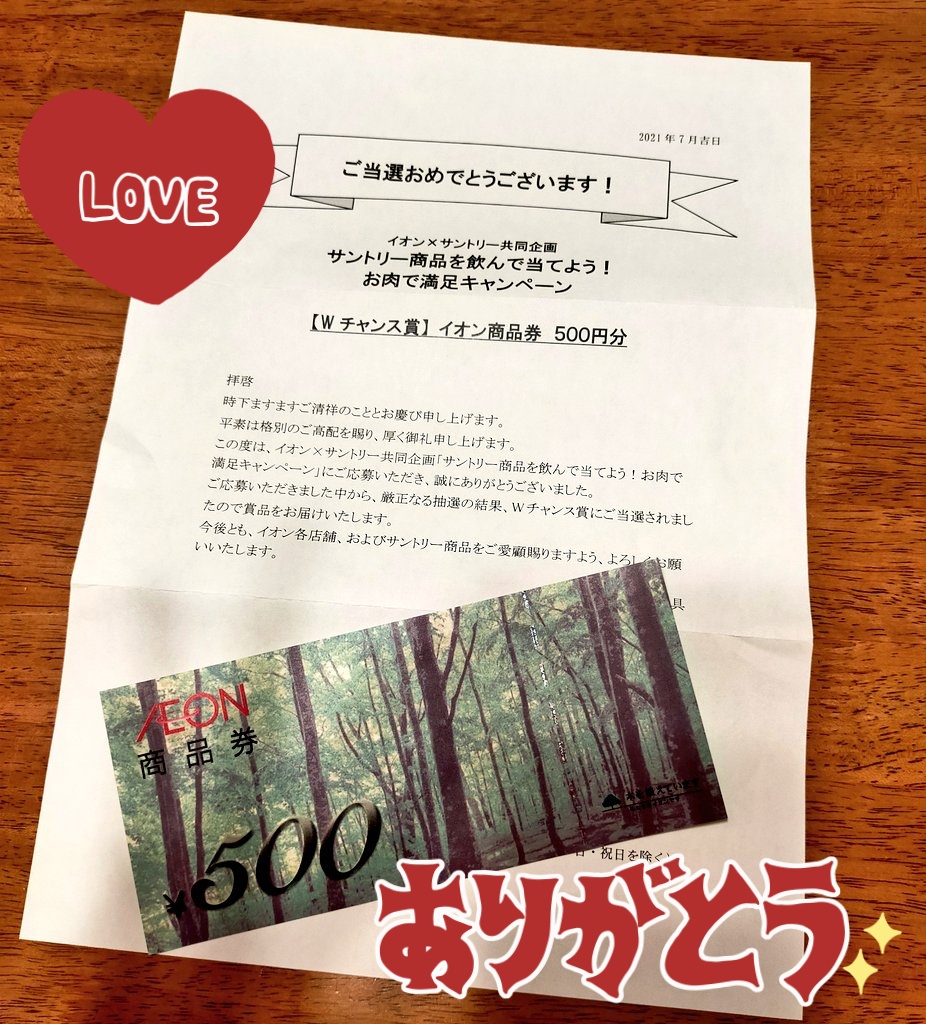 2021年7月吉日
LOVE
ご当選おめでとうございます！
イオン×サントリー共同企画
サントリー商品を飲んで当てよう！
お肉で満足キャンペーン
【W チャンス賞】イオン商品券 500円分
拝啓
時下ますますご清祥のこととお慶び申し上げます。
平素は格別のご高配を賜り、厚く御礼申し上げます。
この度は、イオン×サントリー共同企画「サントリー商品を飲んで当てよう！お肉で
満足キャンペーン」にご応募いただき、誠にありがとうございました。
ご応募いただきました中から、厳正なる抽選の結果、Wチャンス賞にご当選されまし
たので賞品をお届けいたします。
今後とも、イオン各店舗、およびサントリー商品をご愛顧賜りますよう、よろしくお願
いいたします。
具
ÆON
商品券
¥500
日・祝日を除く）
ありがとう